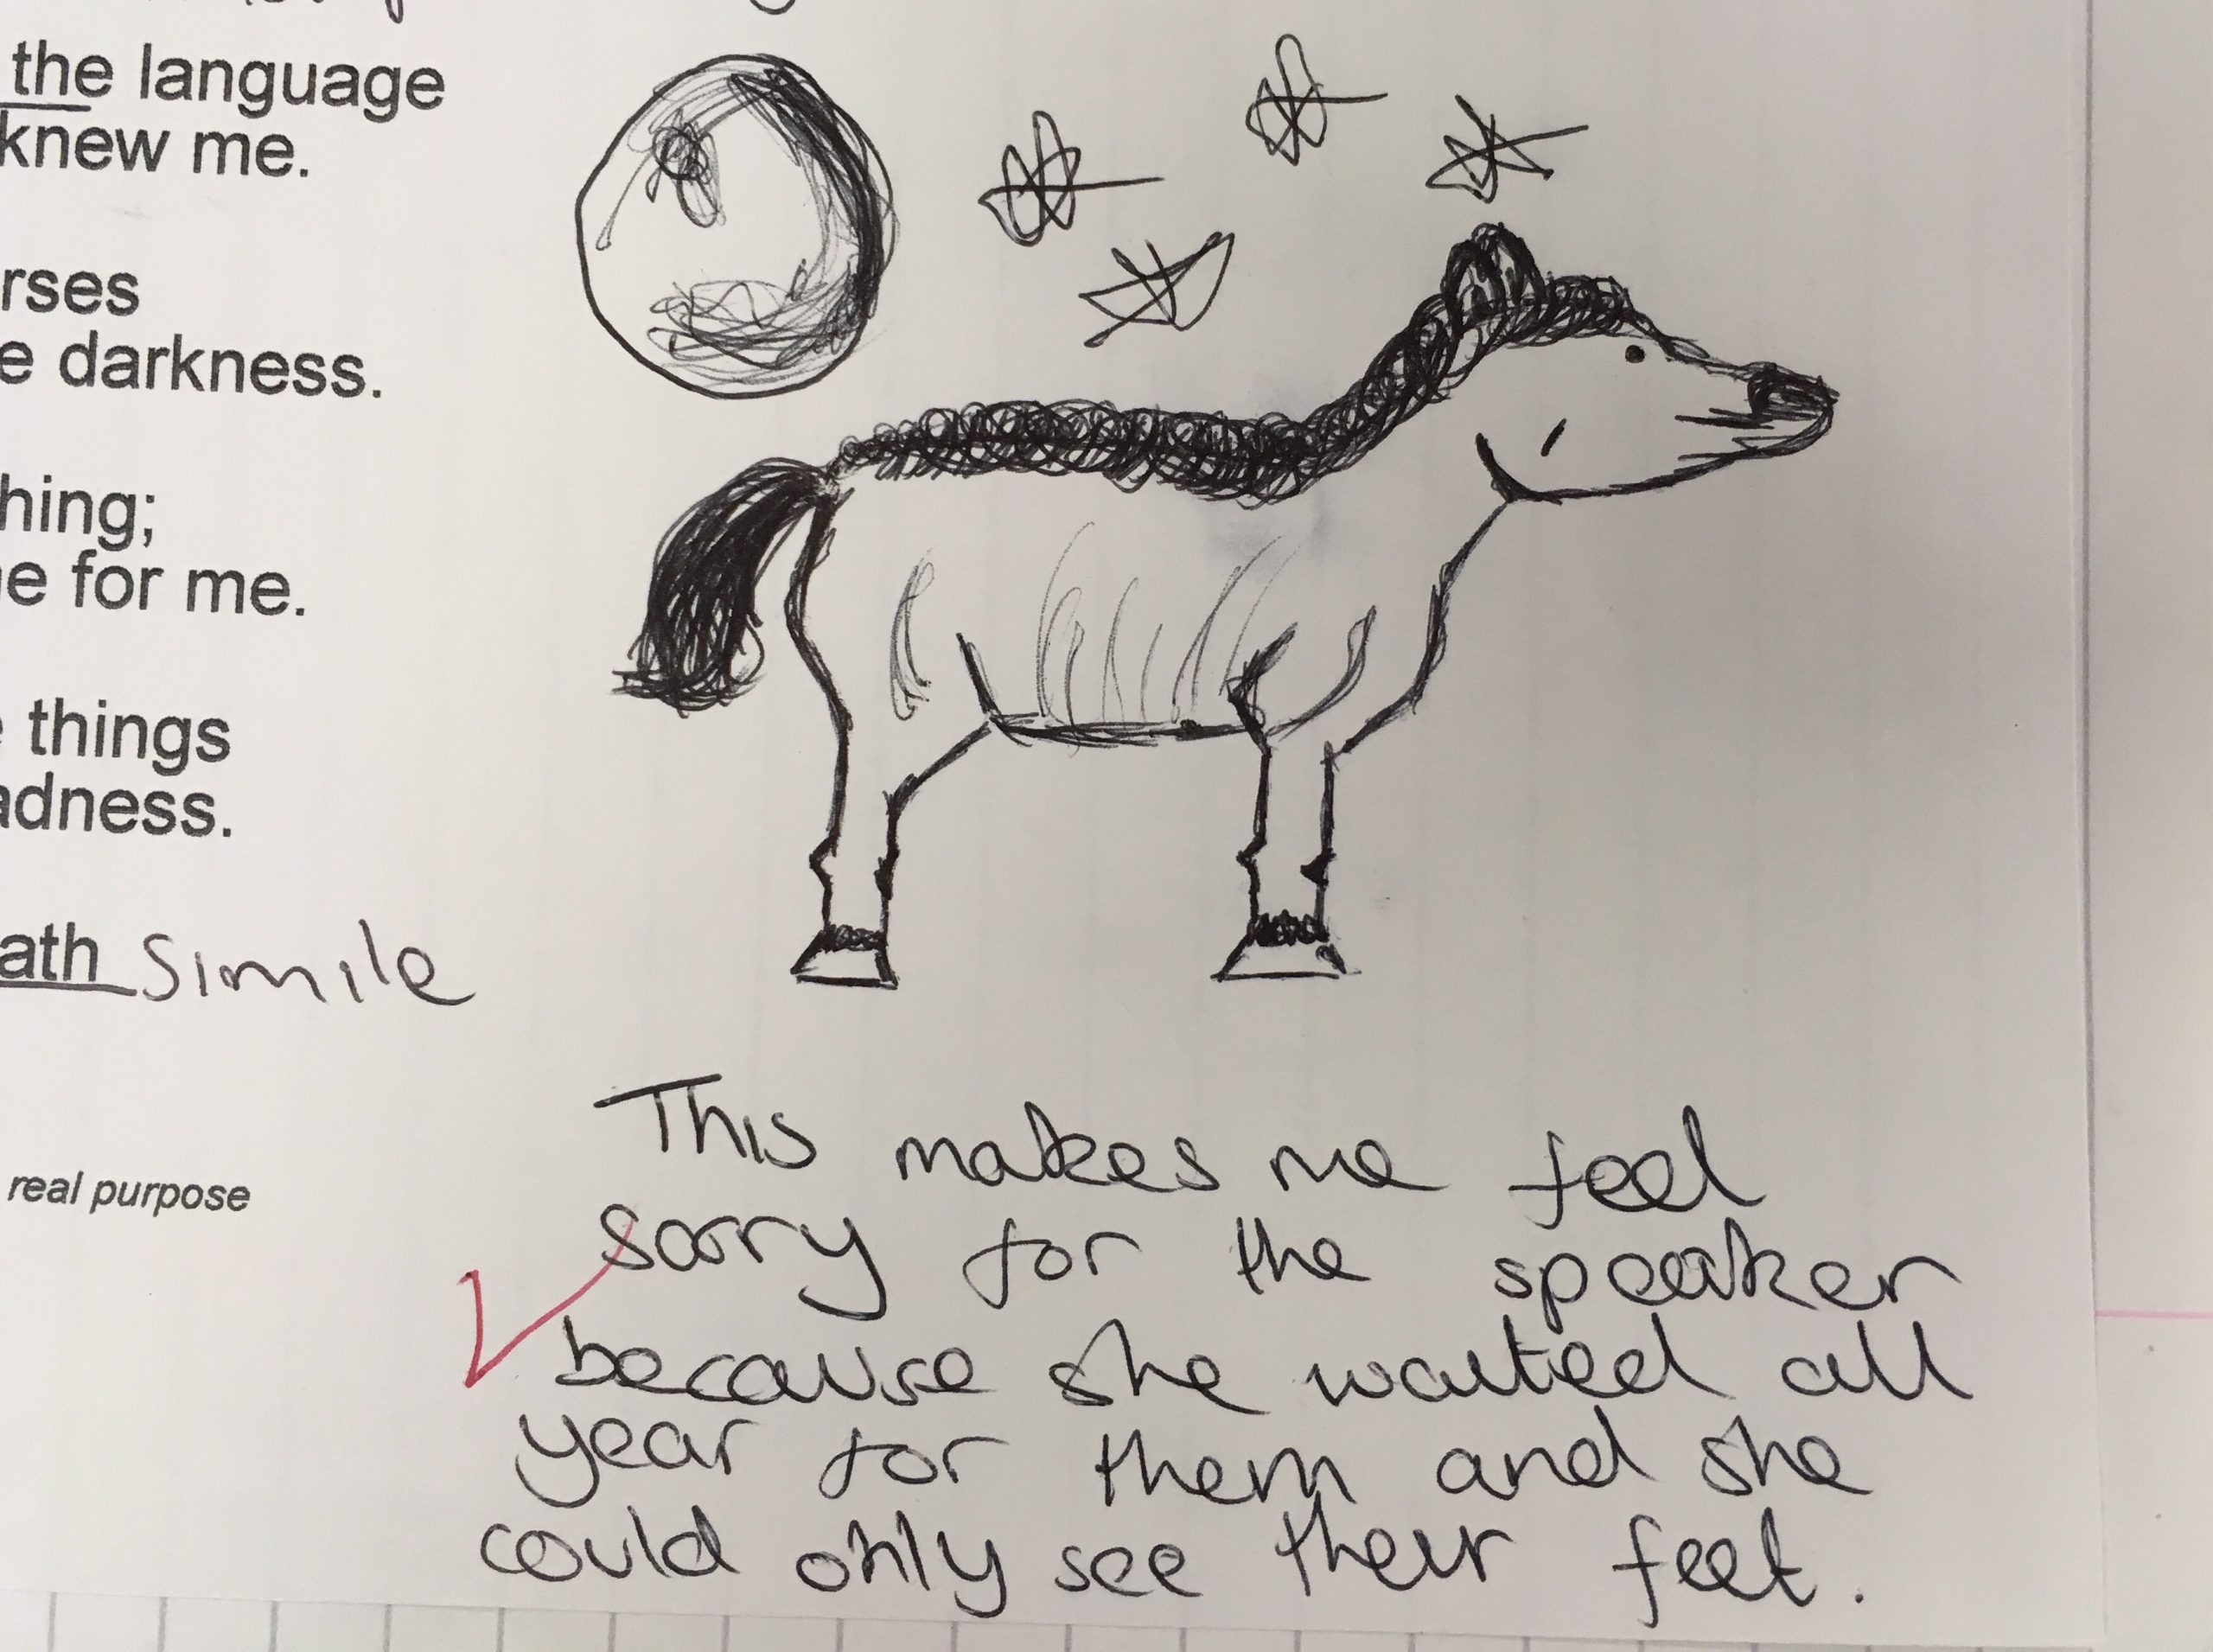 the language
knew me.
rses
e darkness.
hing;
e for me.
things
adness.
ath Simile
real purpose
This makes me feel
sorry for the speaker
because she waited all
year for them and she
could only see their feet.